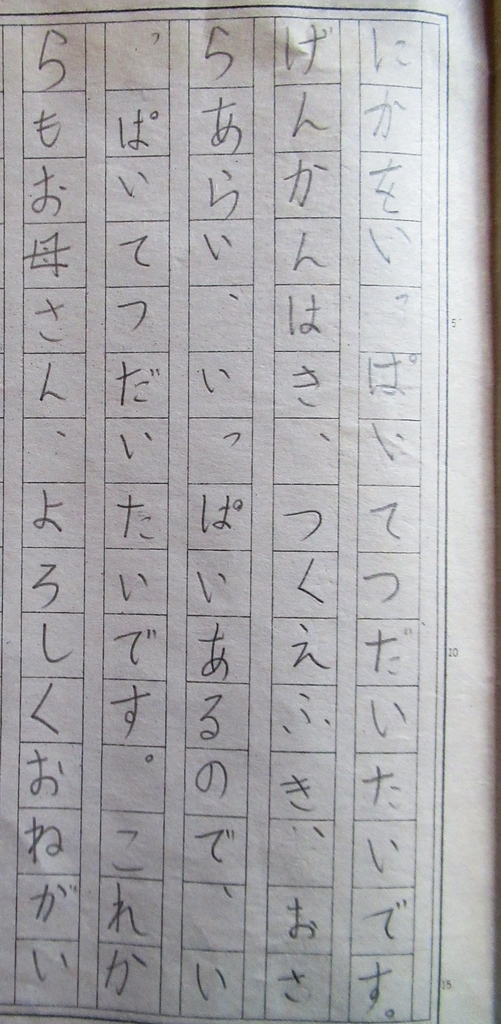 にかをいっぱいてつだいたいです。
げんかんはき、つくえふき、おさ
らあらい、いっぱいあるので、い
っぱいてつだいたいです。これか
らもお母さん、よろしくおねがい
5
10
15